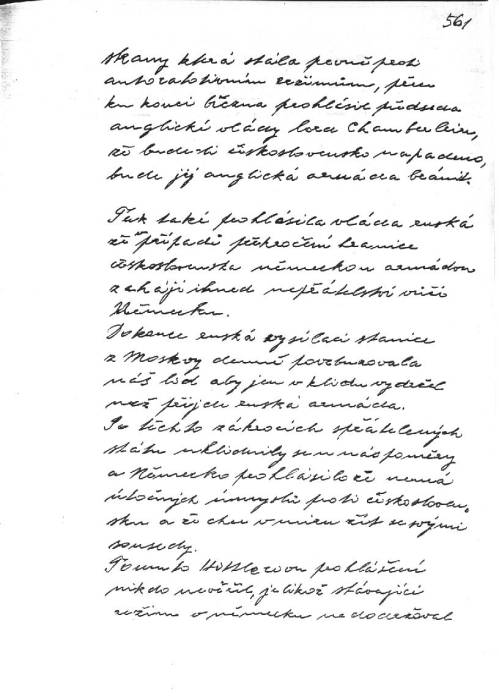 561
strany která stála pevně proti
autoratotivním režimům, přes
ku konci března prohlásil předseda
anglické vlády lord Chamberlein,
že bude-li československo napadeno,
bude jej anglická armáda bránit.
Tak také prohlásila vláda ruská
že případě překročení hranice
československa německou armádou
zahájí ihned nepřátelství vůči
Německu.
Dokonce ruská vysílací stanice
z Moskvy denně povzbuzovala
náš lid aby jen v klidu vydržel
než přijde ruská armáda.
Po těchto zákrocích spřátelených
státu uklidnily se u nás poměry
a Německo prohlásilo že nemá
útočných úmyslů proti českosloven.
sku a že chce v míru žít se svými
sousedy.
Tomuto Hittlerovu prohlášení
nikdo nevěřil, jelikož stávající
režim v německu nedodržoval